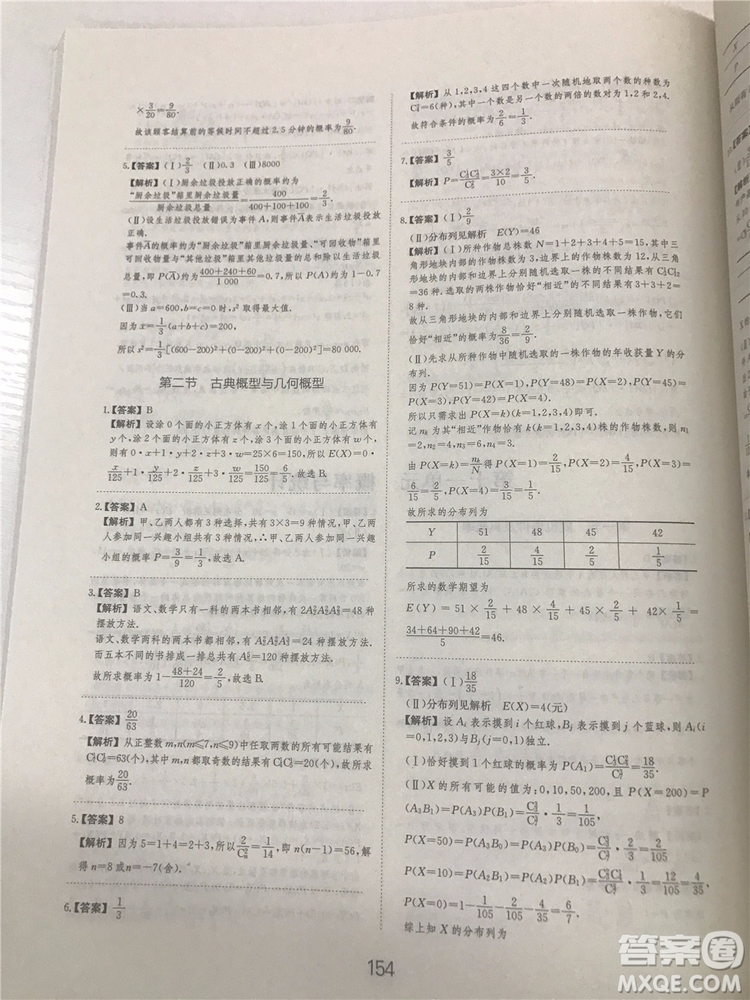 ×3/20=9/80.
故该顾客结算前的等候时间不超过2.5分钟的概率为9/80.
5.【答案】(Ⅰ)2/3 (Ⅱ)0.3 (Ⅲ)8000
【解析】(Ⅰ)厨余垃圾投放正确的概率约为
“厨余垃圾”箱里厨余垃圾量/厨余垃圾总量=400/(400+100+100)=2/3.
(Ⅱ)设生活垃圾投放错误为事件A,则事件A̅表示生活垃圾投放
正确.
事件A̅的概率约为“厨余垃圾”箱里厨余垃圾量、“可回收物”箱里
可回收物量与“其他垃圾”箱里其他垃圾量的总和除以生活垃圾
总量,即P(A̅)约为(400+240+60)/1 000=0.7,所以P(A)约为1-0.7
=0.3.
(Ⅲ)当a=600,b=c=0时,s²取得最大值.
因为x̅=1/3(a+b+c)=200,
所以s²=1/3[(600-200)²+(0-200)²+(0-200)²]=80 000.
第二节 古典概型与几何概型
1.【答案】B
【解析】设涂0个面的小正方体有x个,涂1个面的小正方体有
y个,涂2个面的小正方体有z个,涂3个面的小正方体有w个,
则有0·x+1·y+2·z+3·w=25×6=150,所以E(X)=0·
x/125+1·y/125+2·z/125+3·w/125=150/125=6/5.故选B.
2.【答案】A
【解析】甲、乙两人都有3种选择,共有3×3=9种情况,甲、乙两
人参加同一兴趣小组共有3种情况,∴甲、乙两人参加同一兴趣
小组的概率P=3/9=1/3,故选A.
3.【答案】B
【解析】语文、数学只有一科的两本书相邻,有2A₂²A₂²A₃²=48种
摆放方法.
语文、数学两科的两本书都相邻,有A₂²A₂²A₃³=24种摆放方法.
而五本不同的书排成一排总共有A₅⁵=120种摆放方法.
故所求概率为1-(48+24)/120=2/5.故选B.
4.【答案】20/63
【解析】从正整数m,n(m≤7,n≤9)中任取两数的所有可能结果有
C₇¹C₉¹=63(个),其中m,n都取奇数的结果有C₄¹C₅¹=20(个),故所求
概率为20/63.
5.【答案】8
【解析】因为5=1+4=2+3,所以2/Cₙ²=1/14,即n(n-1)=56,解
得n=8或n=-7(舍).
6.【答案】1/3
【解析】从1,2,3,4这四个数中一次随机地取两个数的种数为
C₄²=6(种),其中一个数是另一个数的两倍的数对为1,2和2,4.
故符合条件的概率为2/6=1/3.
7.【答案】3/5
【解析】P=C₃¹C₂¹/C₅²=(3×2)/10=3/5.
8.【答案】(Ⅰ)2/9
(Ⅱ)分布列见解析 E(Y)=46
【解析】(Ⅰ)所种作物总株数N=1+2+3+4+5=15,其中三
角形地块内部的作物株数为3,边界上的作物株数为12.从三角
形地块的内部和边界上分别随机选取一株的不同结果有C₃¹C₁₂¹
=36种,选取的两株作物恰好“相近”的不同结果有3+3+2=
8种.
故从三角形地块的内部和边界上分别随机选取一株作物,它们
恰好“相近”的概率为8/36=2/9.
(Ⅱ)先求从所种作物中随机选取的一株作物的年收获量Y的分
布列.
因为P(Y=51)=P(X=1),P(Y=48)=P(X=2),P(Y=45)
=P(X=3),P(Y=42)=P(X=4),
所以只需求出P(X=k)(k=1,2,3,4)即可.
记nₖ为其“相近”作物恰有k株的作物株数(k=1,2,3,4),则n₁
=2,n₂=4,n₃=6,n₄=3.
由P(X=k)=nₖ/N得P(X=1)=2/15,P(X=2)=4/15,P(X=3)=
6/15=2/5,P(X=4)=3/15=1/5.
故所求的分布列为
Y 51 48 45 42
P 2/15 4/15 2/5 1/5
所求的数学期望为
E(Y)=51×2/15+48×4/15+45×2/5+42×1/5=
(34+64+90+42)/5=46.
9.【答案】(Ⅰ)18/35
(Ⅱ)分布列见解析 E(X)=4(元)
【解析】设Aᵢ表示摸到i个红球,Bⱼ表示摸到j个蓝球,则Aᵢ(i
=0,1,2,3)与Bⱼ(j=0,1)独立.
(Ⅰ)恰好摸到1个红球的概率为P(A₁)=C₃¹C₄²/C₇³=18/35.
(Ⅱ)X的所有可能的值为:0,10,50,200,且P(X=200)=P
(A₃B₁)=P(A₃)P(B₁)=C₃³/C₇³·1/3=1/105,
P(X=50)=P(A₃B₀)=P(A₃)P(B₀)=C₃³/C₇³·2/3=2/105,
P(X=10)=P(A₂B₁)=P(A₂)P(B₁)=C₃²C₄¹/C₇³·1/3=12/105=4/35,
P(X=0)=1-1/105-2/105-4/35=6/7.
综上知X的分布列为
154
答案圈
MXQE.COM